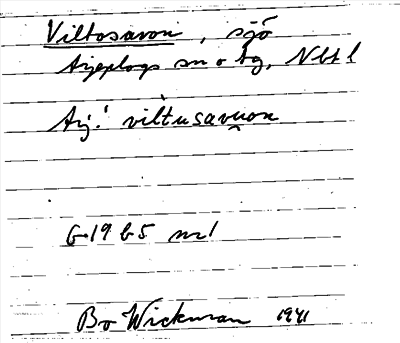 Viltosavon, sjö
Arjeplogs sn o tg, Nbt l
Arj.! viltusavuon
6-19 b5 nr1
Bo Wickman 1941